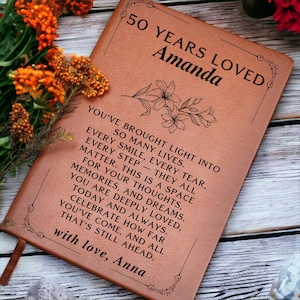 50 YEARS LOVED
Amanda
YOU'VE BROUGHT LIGHT INTO
SO MANY LIVES.
EVERY SMILE, EVERY TEAR,
EVERY STEP — THEY ALL
MATTER. THIS IS A SPACE
FOR YOUR THOUGHTS,
MEMORIES, AND DREAMS.
YOU ARE DEEPLY LOVED,
TODAY AND ALWAYS.
CELEBRATE HOW FAR
YOU'VE COME, AND ALL
THAT'S STILL AHEAD.
with love, Anna